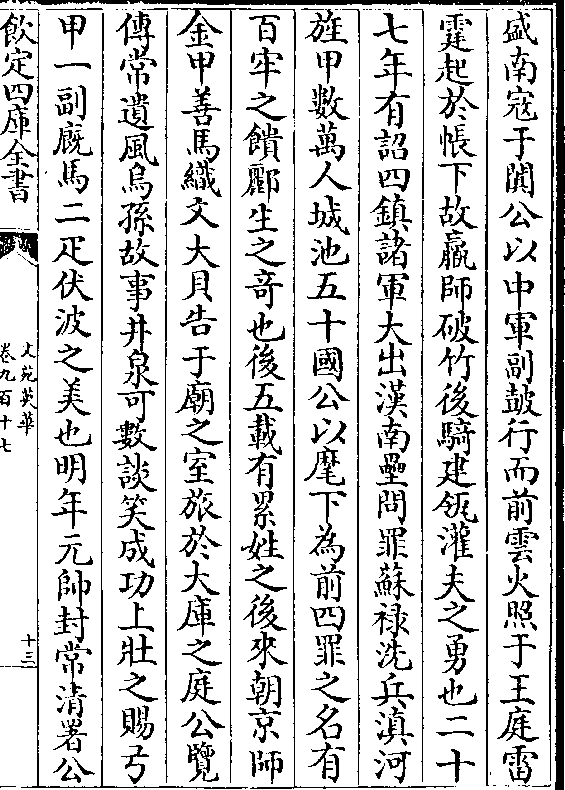 盛南寇于闐公以中軍副鼓行而前雲火照于王庭雷
霆起於帳下故羸師破竹後騎建瓴灌夫之勇也二十
七年有詔四鎮諸軍大出漢南壘問罪蘇禄洗兵滇河
旌甲數萬人城池五十國公以麾下為前四罪之名有
百牢之饋酈生之竒也後五載有累姓之後來朝京師
金甲善馬織文大貝告于廟之室旅於大庫之庭公覽
傳常遺風烏孫故事井泉可數談笑成功上壯之賜弓
甲一副廐馬二疋伏波之美也明年元帥封常清署公
欽定四庫全書
文苑英華
卷九百十七
十三